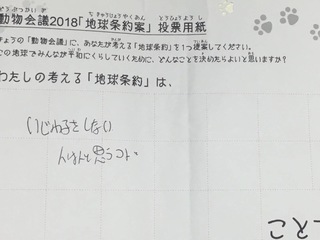 動物会議2018「地球条約案」投票用紙
きょうの「動物会議」に、あなたが考える「地球条約」を1つ提案してください。
この地球でみんなが平和にくらしていくために、どんなことを決めたらよいと思いますか？
わたしの考える「地球条約」は、
いじわるをしない
思うコト
こと